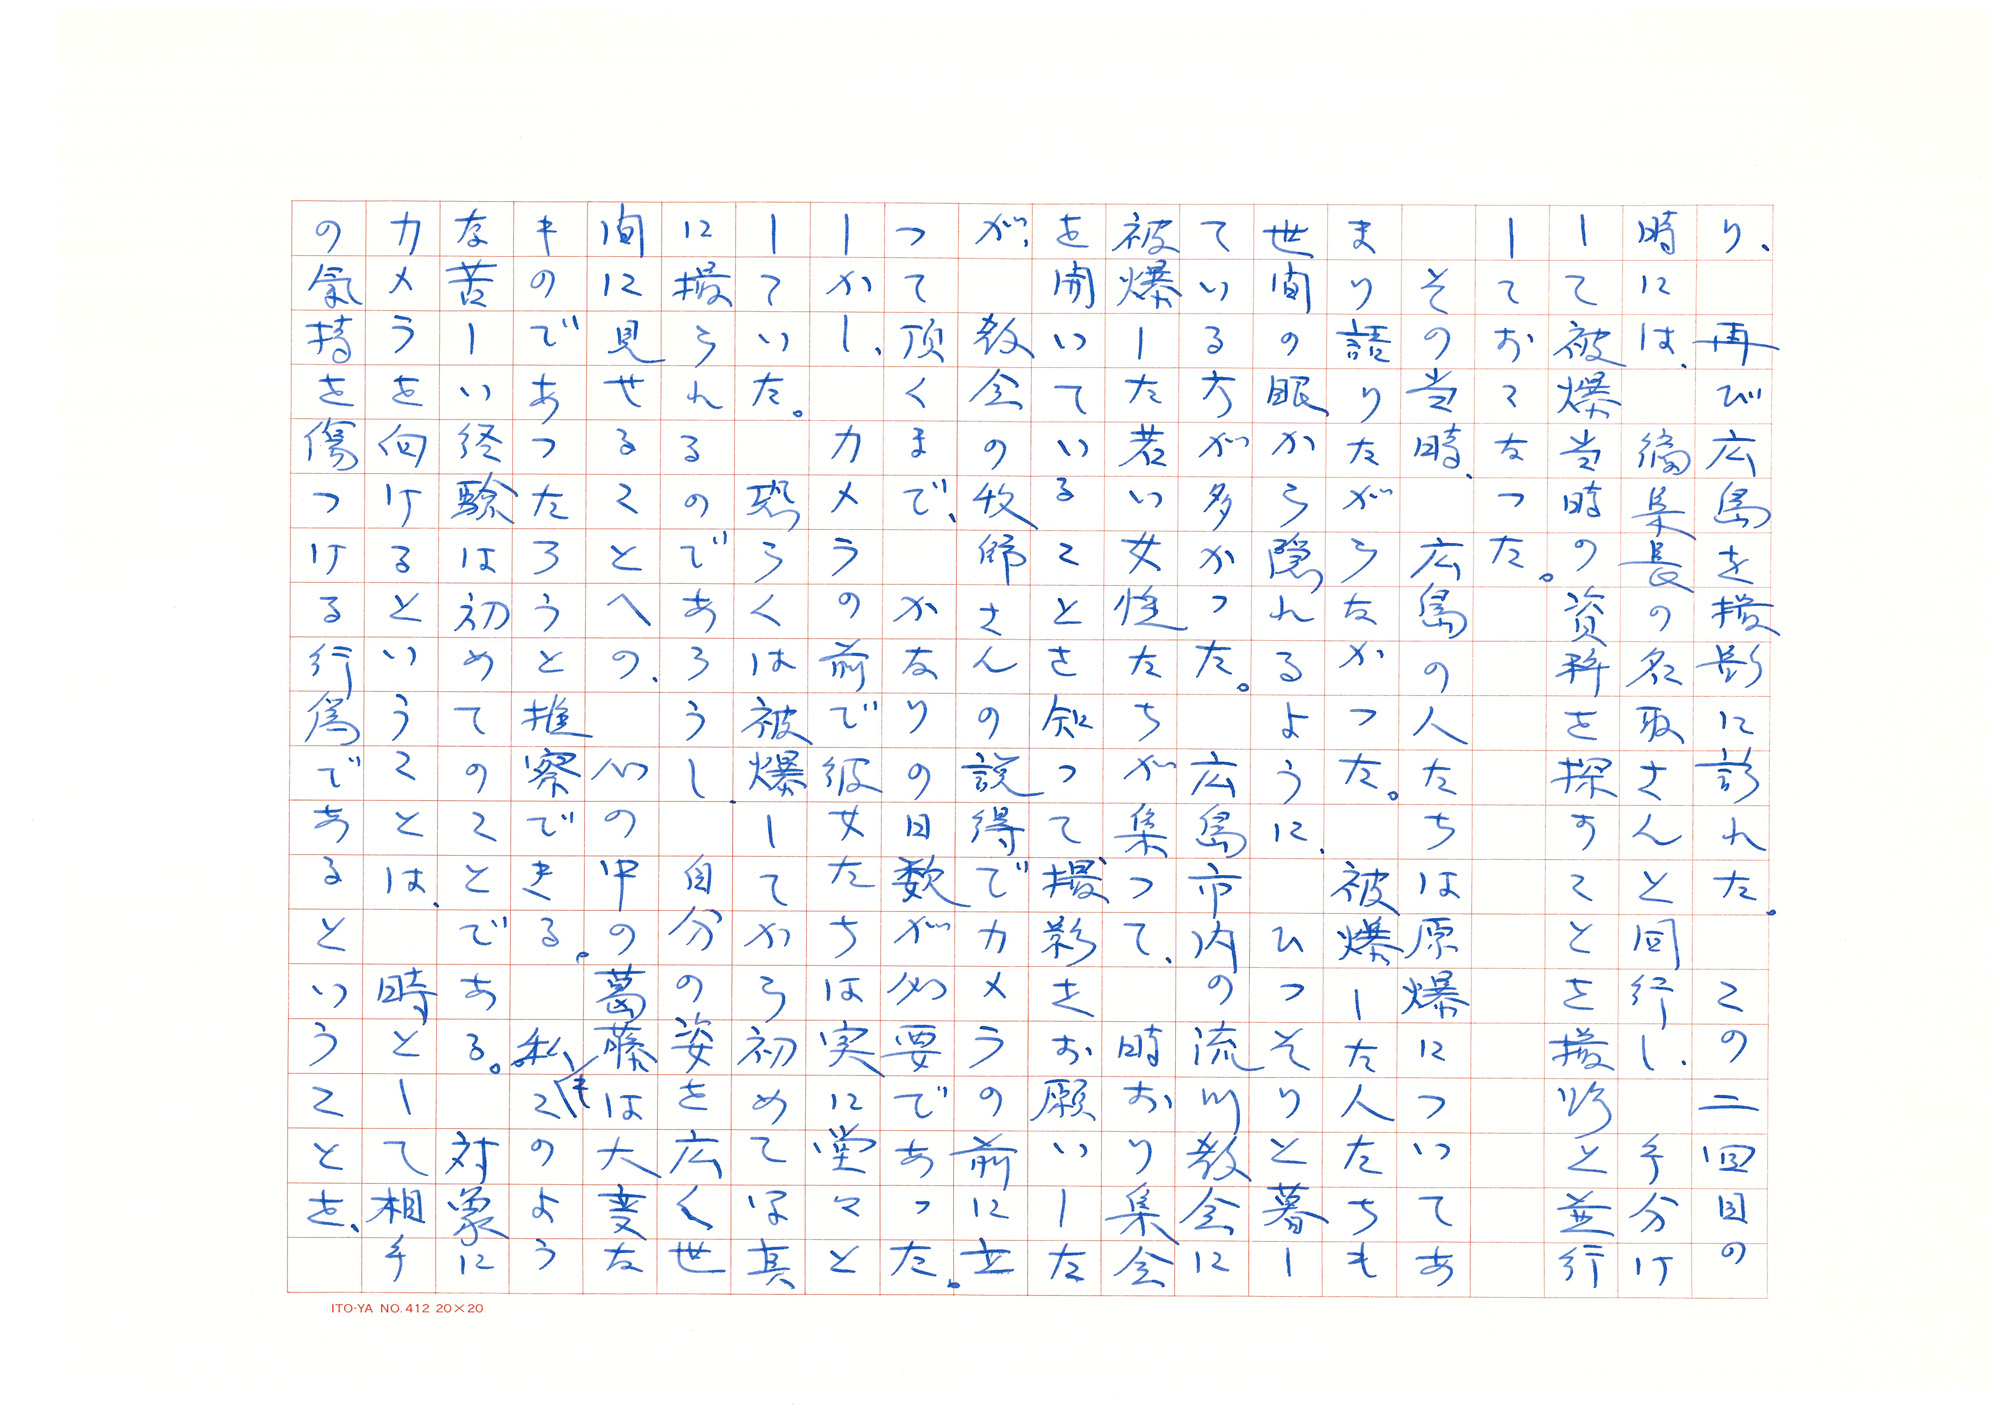 り、再び広島を撮影に訪れた。この二回目の
時には、編集長の名取さんと同行し、手分け
して被爆当時の資料を探すことを撮影と並行
しておこなった。
その当時、広島の人たちは原爆についてあ
まり語りたがらなかった。被爆した人たちも
世間の眼から隠れるように、ひっそりと暮し
ている方が多かった。広島市内の流川教会に
被爆した若い女性たちが集って、時おり集会
を開いていることを知って撮影をお願いした
が、教会の牧師さんの説得でカメラの前に立
って頂くまで、かなりの日数が必要であった。
しかし、カメラの前で彼女たちは実に堂々と
していた。恐らくは被爆してから初めて写真
に撮られるのであろうし、自分の姿を広く世
間に見せることへの、心の中の葛藤は大変な
ものであったろうと推察できる。私もこのよう
な苦しい経験は初めてのことである。対象に
カメラを向けるということは、時として相手
の氣持を傷つける行為であるということを、
ITO-YA NO.412 20×20